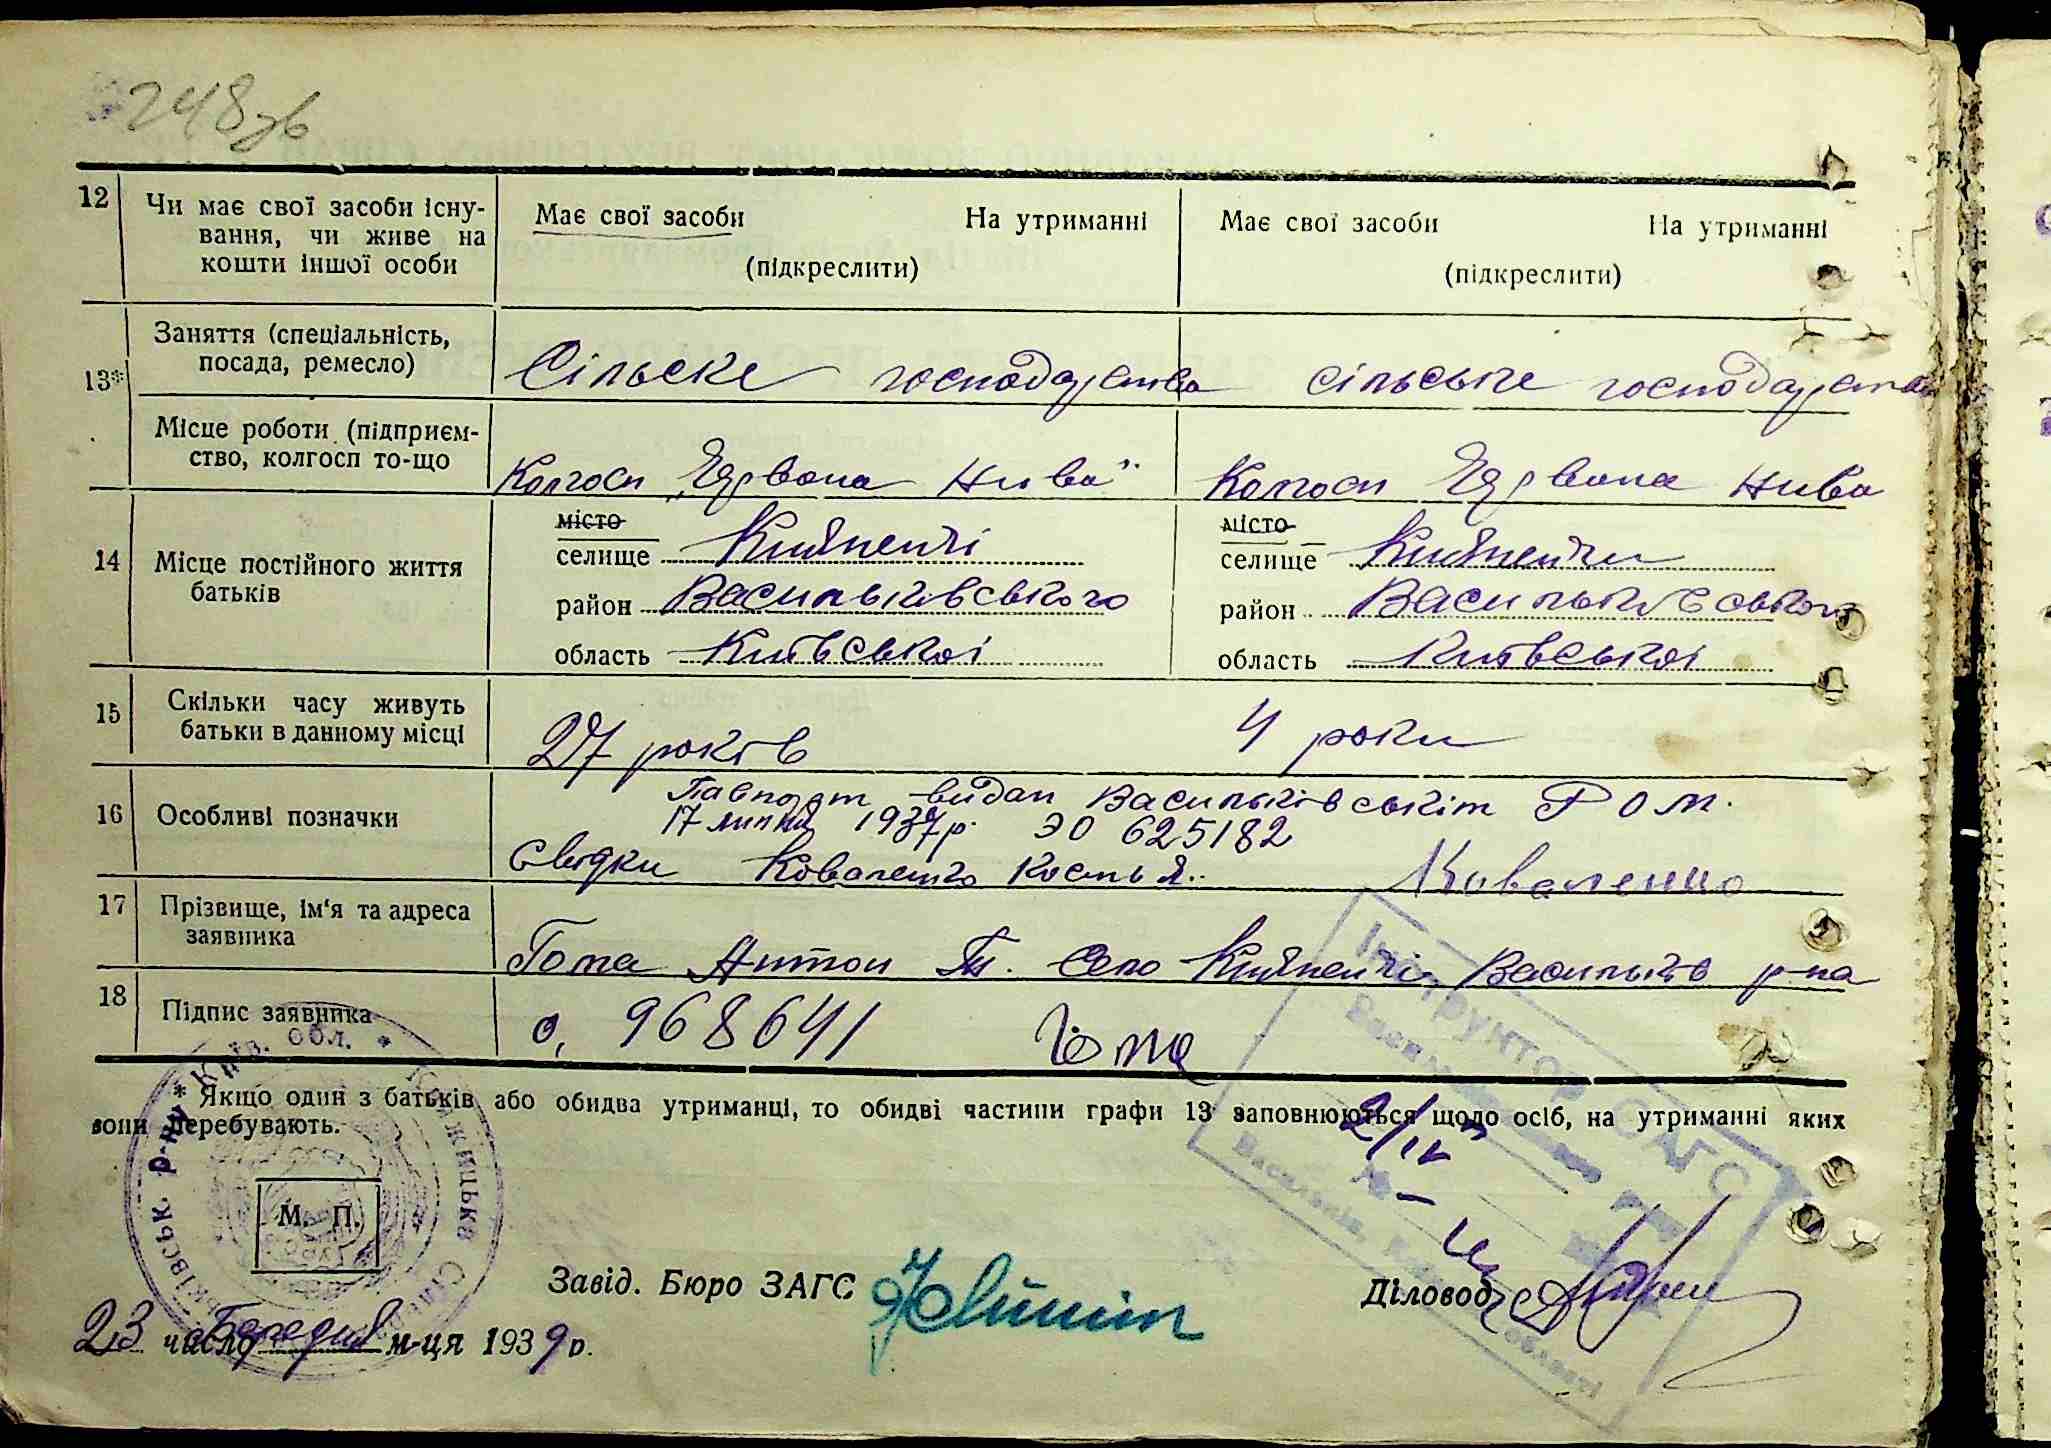 248зв
12 Чи має свої засоби існу-
вання, чи живе на
кошти іншої особи
Має свої засоби На утриманні
(підкреслити)
Має свої засоби На утриманні
(підкреслити)
13* Заняття (спеціальність,
посада, ремесло)
Сільске господарство сільське господарство
Місце роботи (підприєм-
ство, колгосп то-що
Колгосп „Червона Нива" Колгосп Червона Нива
14 Місце постійного життя
батьків
місто
селище
район Васильківського
область Київської
місто
селище
район Васильківського
область Київської
15 Скільки часу живуть
батьки в данному місці
27 років 4 роки
16 Особливі позначки
Пашпорт видан Васильківскім Р О М.
17 липня 1937р. ЭО 625182
свідки Коваленко Кость Я. Коваленко
17 Прізвище, ім'я та адреса
заявника
Гома Антон Т. Село Васильків р-на
18 Підпис заявника
о, 968641 Гома
* Якщо один з батьків або обидва утриманці, то обидві частини графи 13 заповнюються щодо осіб, на утриманні яких
вони перебувають.
Київ. обл. * Кожицька
р-ну *
М. П.
Інструктор ОАГС
Васильків
області
2/IV
№
Завід. Бюро ЗАГС
Діловод
23 число Березня м-ця 1939р.